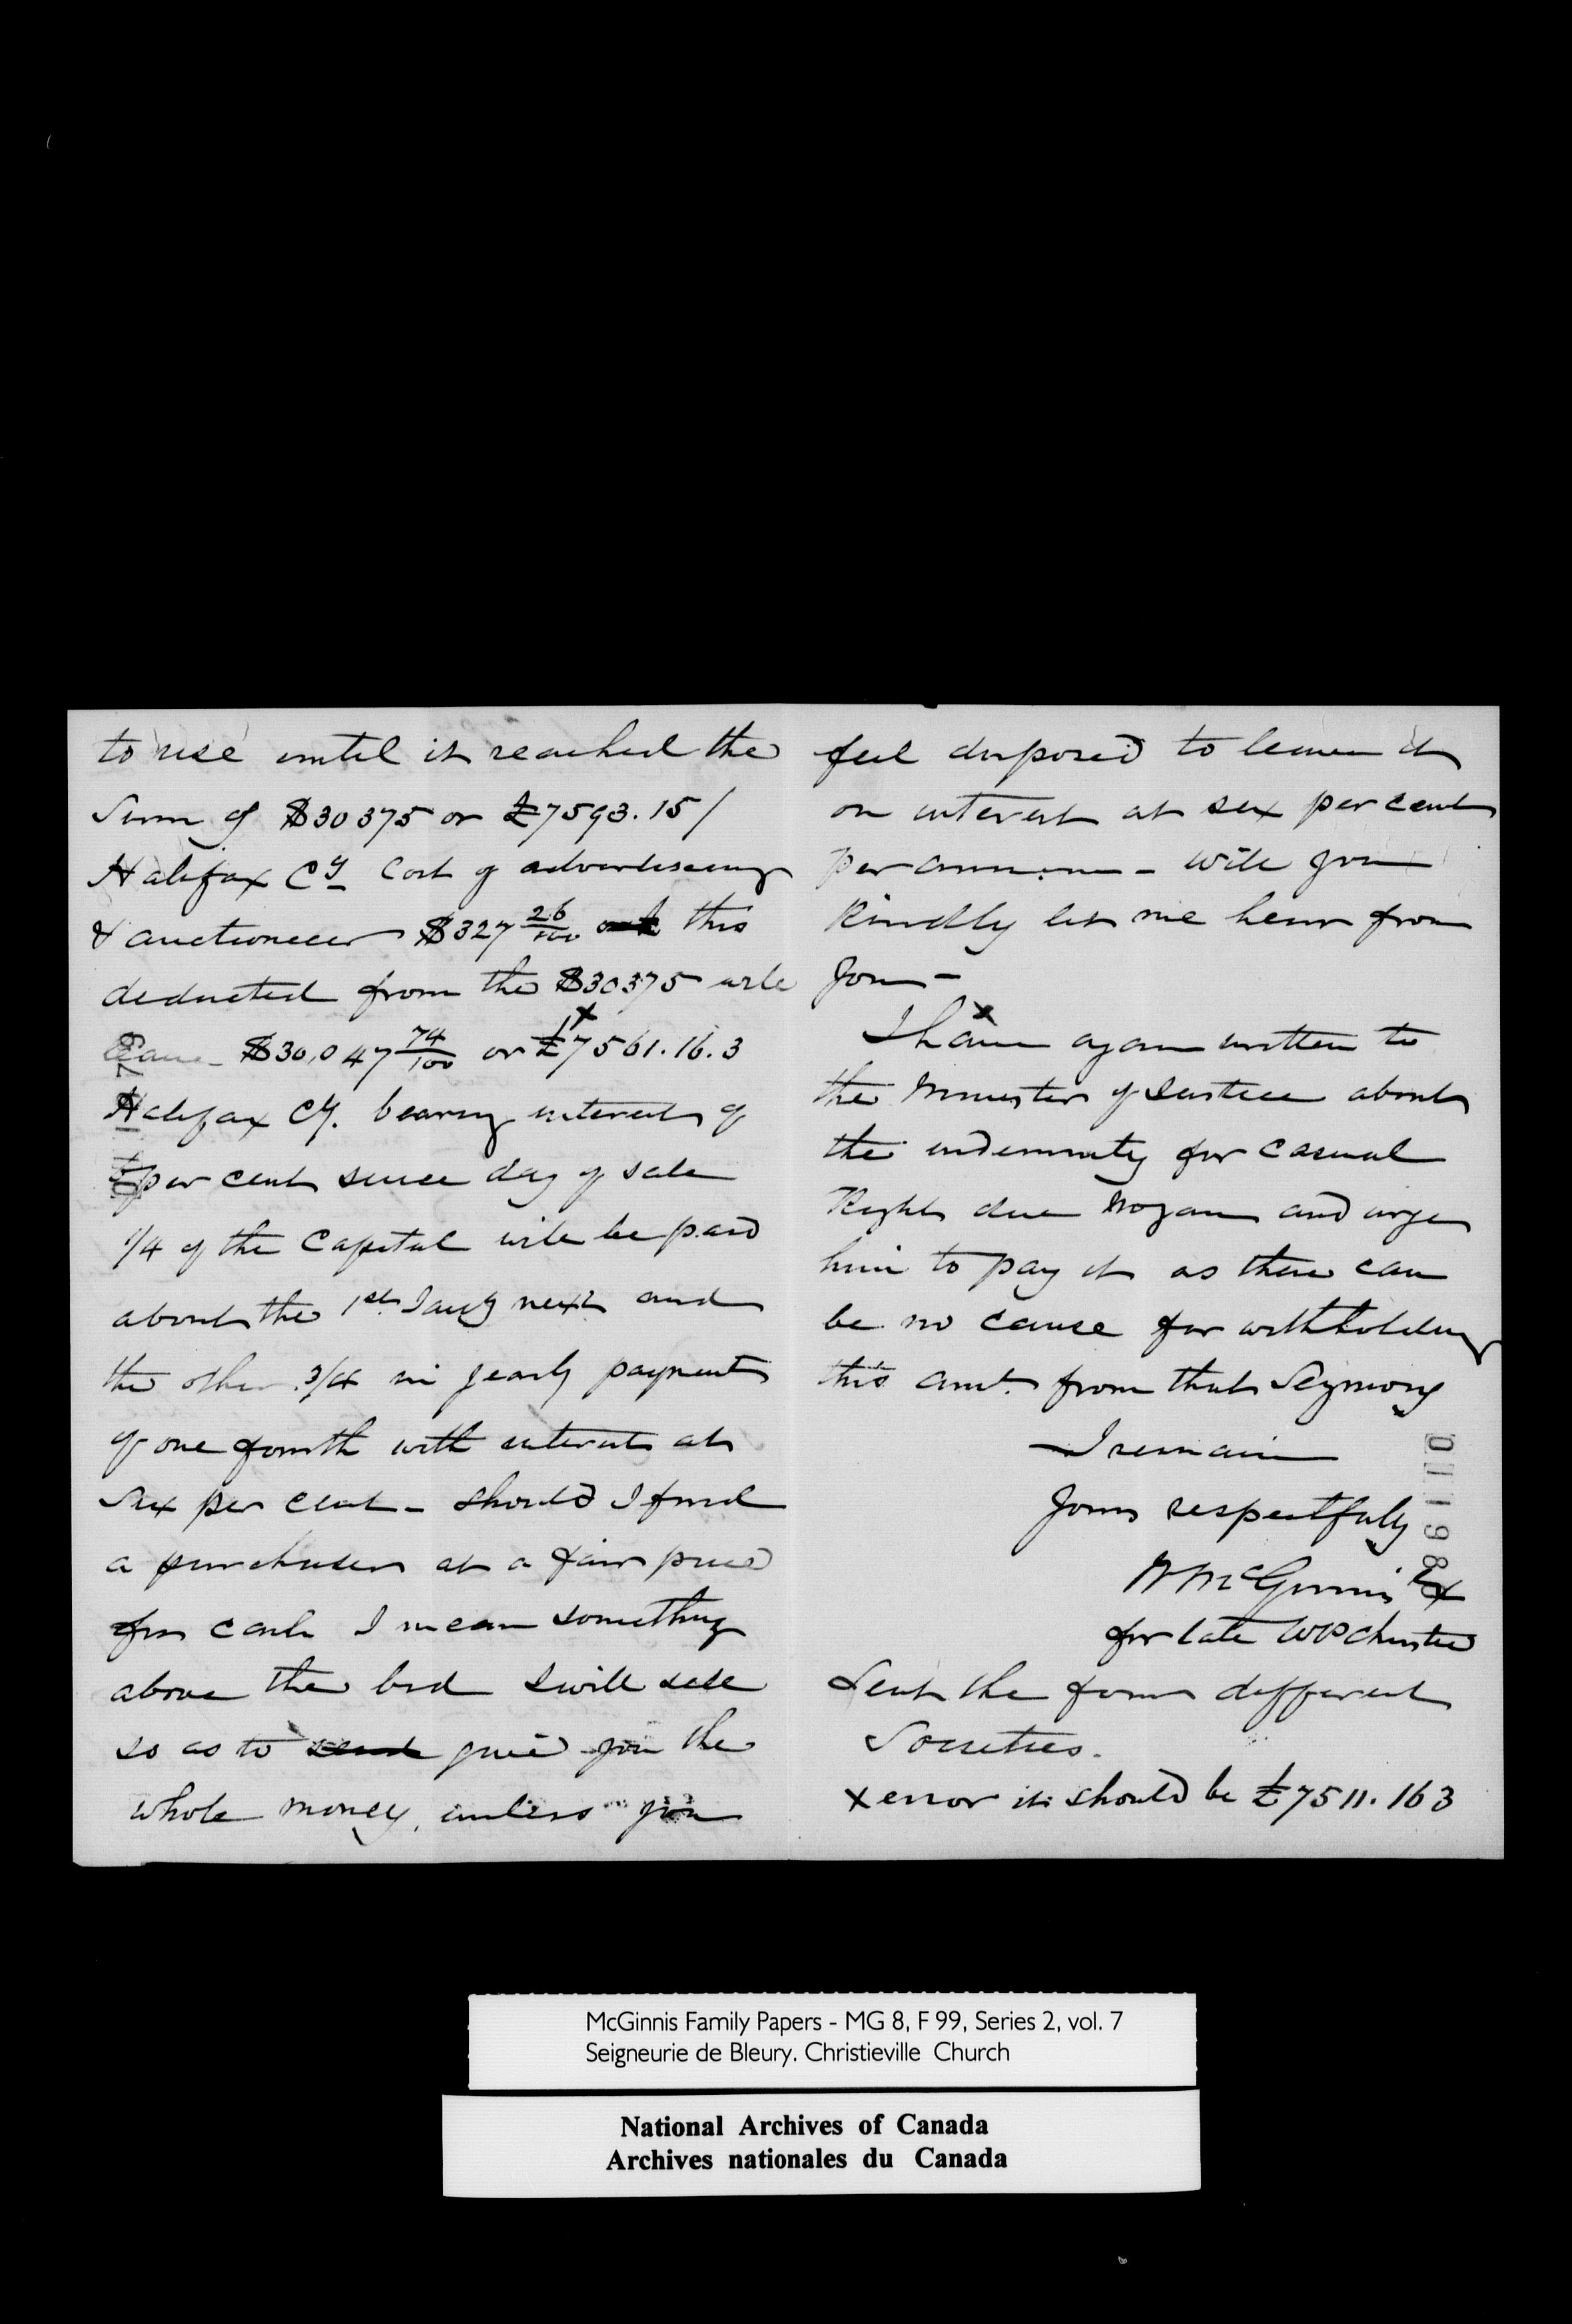 to rise until it reached the
Sum of $30375 or £7593.15/
Halifax Cy Cost of advertiseing
& auctioneer $327 26/100 this
deducted from the $30375 will
leave $30,047 74/100 or £7561.16.3
Halifax Cy. bearing interest of
per cent since day of sale
1/4 of the Capital will be paid
about the 1st Jany next and
the other 3/4 in yearly payments
of one fourth with interest at
Six per cent - should I find
a purchaser at a fair price
for cash I mean something
above the bid I will sell
so as to send give you the
whole money, unless you
feel disposed to leave it
on interest at six per cent
per annum - will you
Kindly let me hear from
you -
x
I have again written to
the Minister of Justice about
the indemnity for Casual
Rights due Noyan and urge
him to pay it as there can
be no cause for withholding
this amt. from that Seigniory
I remain
Yours respectfully
W McGinnis Ex
for late WP Christie
Sent the four different
Societies.
x error it should be £7511.163
011198
McGinnis Family Papers - MG 8, F 99, Series 2, vol. 7
Seigneurie de Bleury. Christieville Church
National Archives of Canada
Archives nationales du Canada